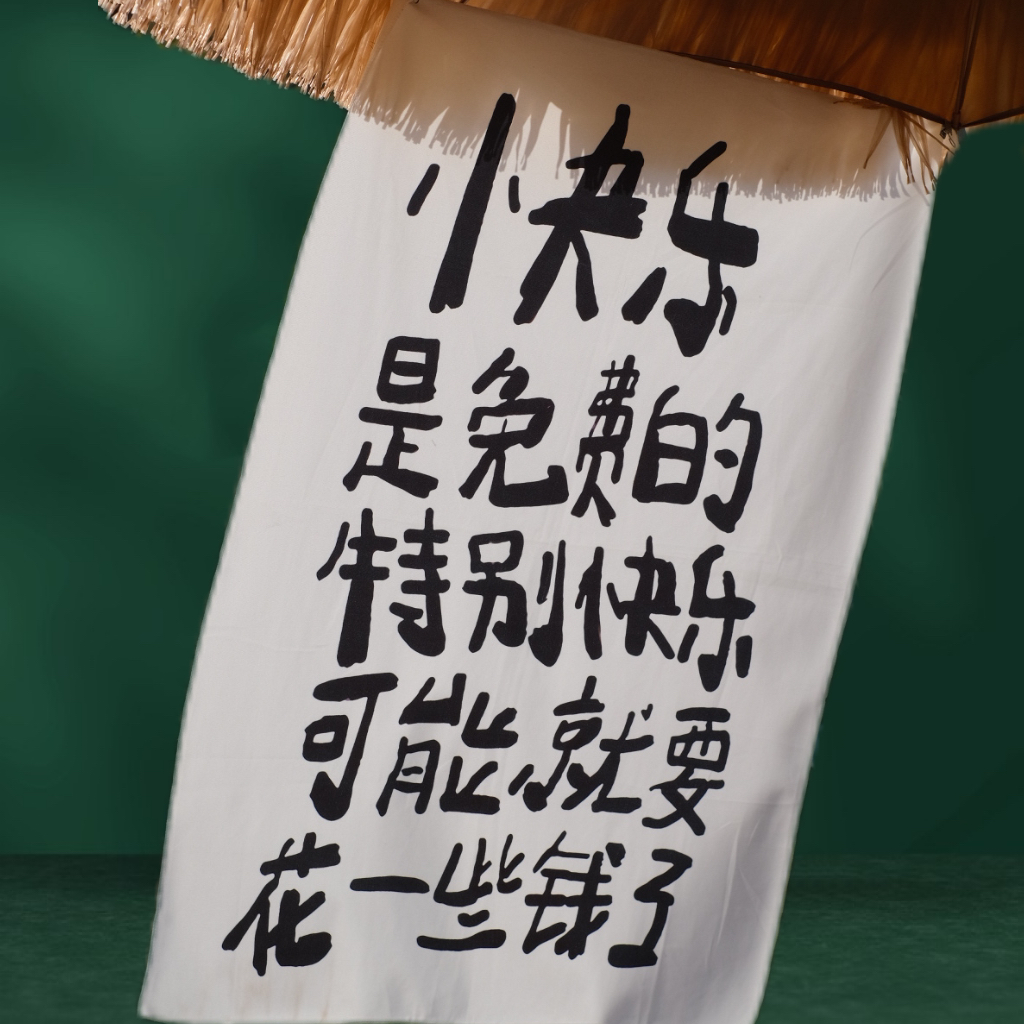 小快乐
是免费的
特别快乐
可能就要
花一些钱了